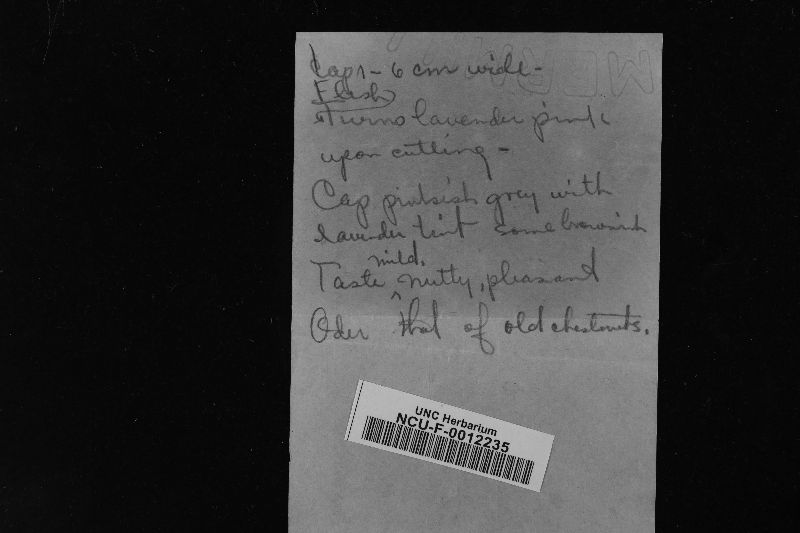 Caps - 6 cm wide -
Flesh
turns lavender pink
upon cutting -
Cap pinkish gray with
lavender tint some brownish
mild.
Taste ^ nutty, pleasant
Oder that of old chestnuts.
UNC Herbarium
NCU-F-0012235